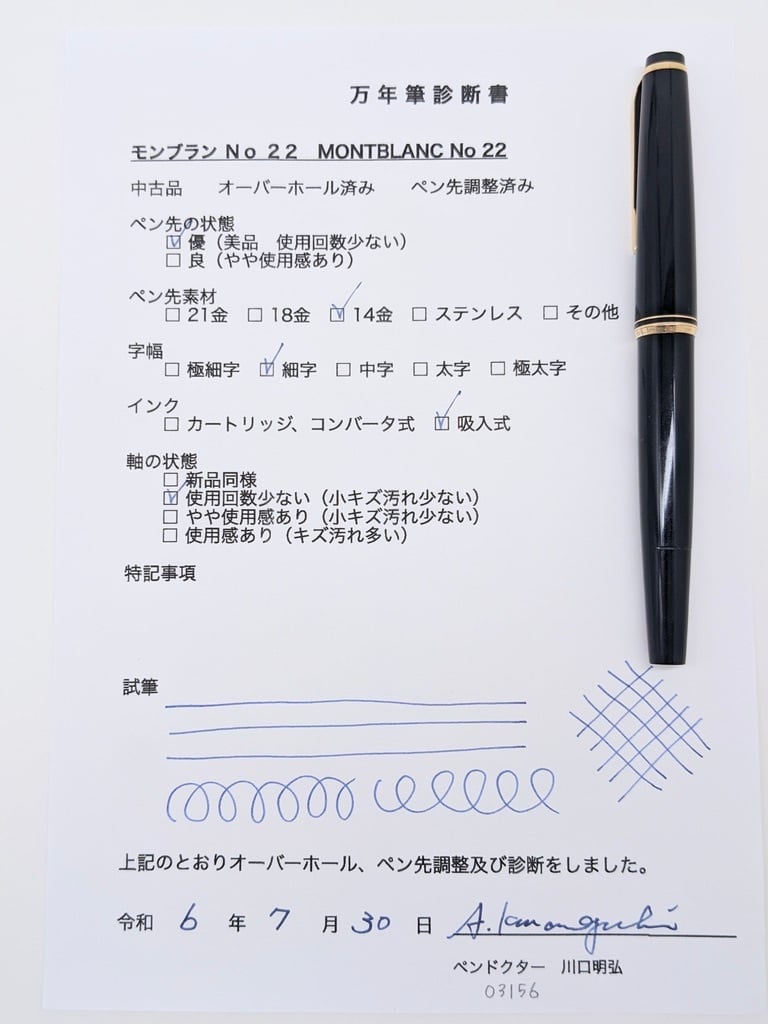 万年筆診断書
モンブラン No 22　MONTBLANC No 22
中古品　　オーバーホール済み　　ペン先調整済み
ペン先の状態
☑ 優（美品　使用回数少ない）
☐ 良（やや使用感あり）
ペン先素材
☐ 21金　☐ 18金　☑ 14金　☐ ステンレス　☐ その他
字幅
☐ 極細字　☑ 細字　☐ 中字　☐ 太字　☐ 極太字
インク
☐ カートリッジ、コンバータ式　☑ 吸入式
軸の状態
☐ 新品同様
☑ 使用回数少ない（小キズ汚れ少ない）
☐ やや使用感あり（小キズ汚れ少ない）
☐ 使用感あり（キズ汚れ多い）
特記事項
試筆
上記のとおりオーバーホール、ペン先調整及び診断をしました。
令和 6 年 7 月 30 日 A. Kawaguchi
ペンドクター　川口明弘
03156